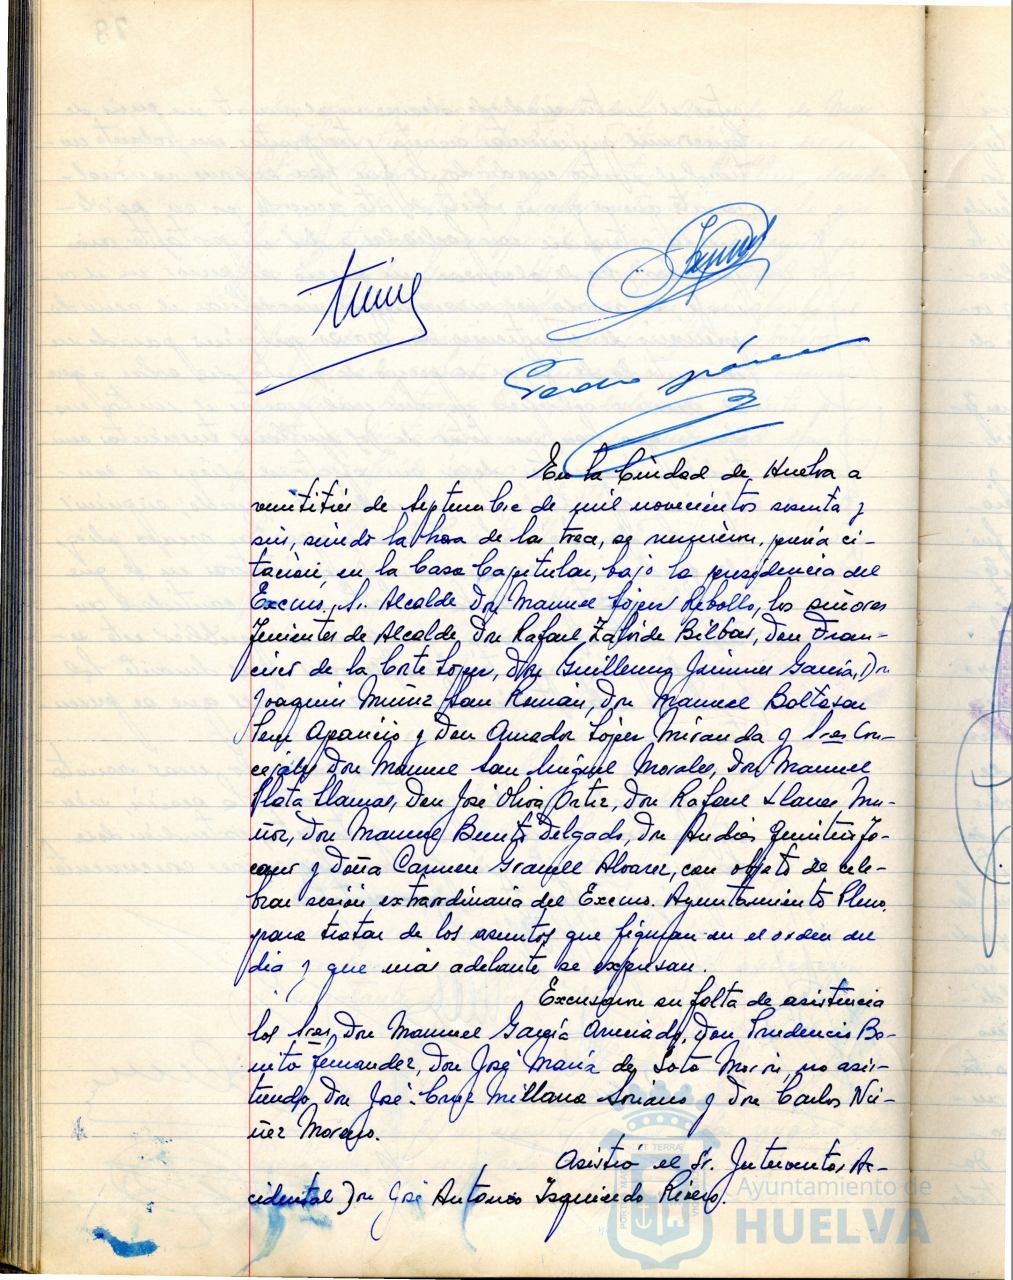 En la Ciudad de Huelva a
veintitrés de Septiembre de mil novecientos sesenta y
seis, siendo la hora de las trece, se reunieron, previa ci-
tación, en la Casa Capitular, bajo la presidencia del
Excmo. Sr. Alcalde Don Manuel López Rebollo, los señores
Tenientes de Alcalde, Don Rafael Zalvide Bilbao, Don Fran-
cisco de la Corte López, Don Guillermo Jiménez García, Don
Joaquín Muñiz San Román, Don Manuel Baltasar
Aparicio y Don Amador López Miranda y Sres Con-
cejales Don Manuel San Miguel Morales, Don Manuel
Plata Llamas, Don José Oliva Ortiz, Don Rafael Llanes Mu-
ñoz, Don Manuel Benito Delgado, Don
y Doña Carmen Granell Alvarez, con objeto de cele-
brar sesión extraordinaria del Excmo. Ayuntamiento Pleno,
para tratar de los asuntos que figuran en el orden del
día y que más adelante se expresan.
Excusaron su falta de asistencia
los Sres, Don Manuel García Don Prudencio Bo-
nito Fernandez, Don José María de Soto Morón, no asis-
tiendo, Don José Cruz Millana Soriano y Don Carlos Nú-
ñez Moreno.
Asistió el Sr. Interventor Ac-
cidental Don José Antonio Izquierdo Rivero.
Ayuntamiento de
HUELVA